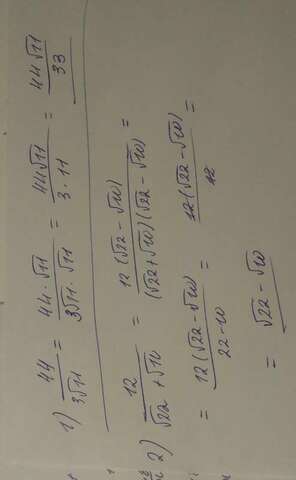 1) 44/3√11 = 44·√11/3√11·√11 = 44√11/3·11 = 44√11/33
2) 12/√22+√10 = 12(√22-√10)/(√22+√10)(√22-√10) =
= 12(√22-√10)/22-10 = 12(√22-√10)/12 =
= √22-√10